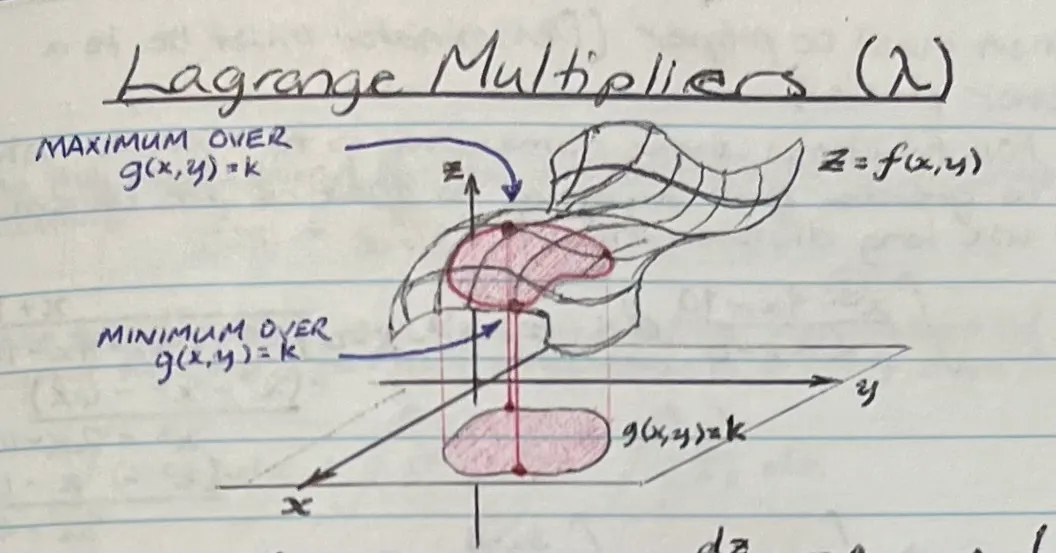 Lagrange Multipliers (λ)
MAXIMUM OVER
g(x,y)=k
z
z = f(x,y)
MINIMUM OVER
g(x,y)=k
y
g(x,y)=k
x
dz